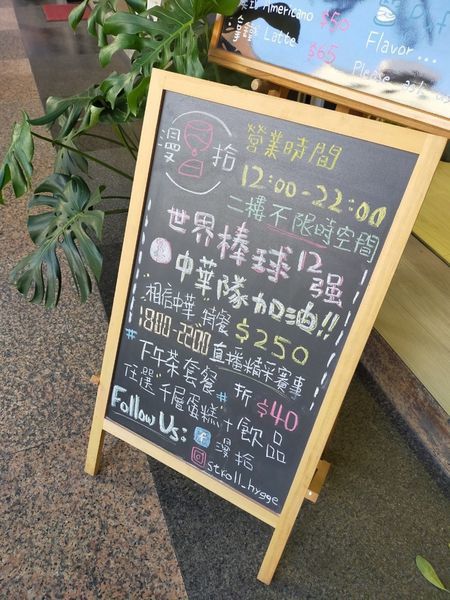 Americano $50
Latte $65
Flavor...
Please
漫拾
營業時間
12:00-22:00
二樓不限時空間
世界棒球12強
中華隊加油!!
相信中華 特餐 $250
1800-2200 直播精采賽事
#下午茶套餐 折 $40
任選千層蛋糕#+飲品
Follow Us: f 漫拾
stroll_hygge